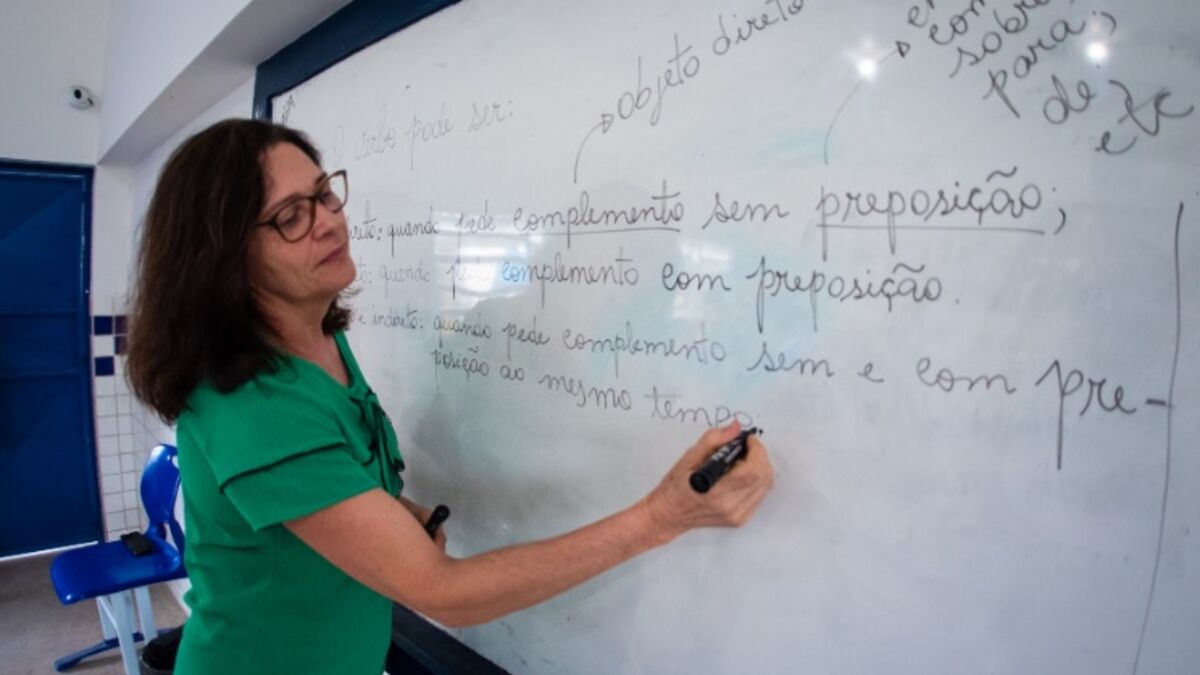 objeto direto
em,
com,
sobre,
para,
de
etc
O verbo pode ser:
quando pede complemento sem preposição;
quando pede complemento com preposição.
e indireto: quando pede complemento sem e com pre-
posição ao mesmo tempo.